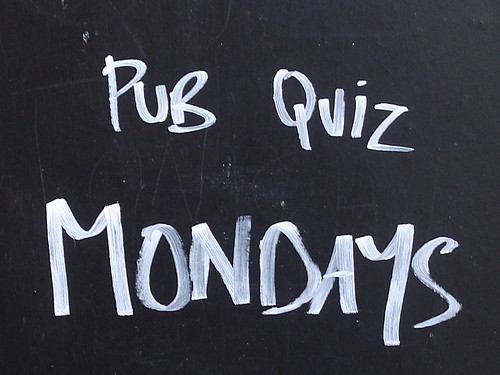 PUB QUIZ
MONDAYS